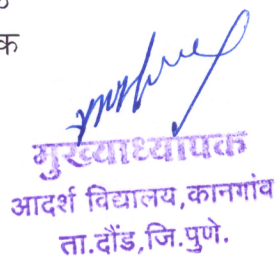 क
मुख्याध्यापक
आदर्श विद्यालय,कानगांव
ता.दौंड,जि.पुणे.